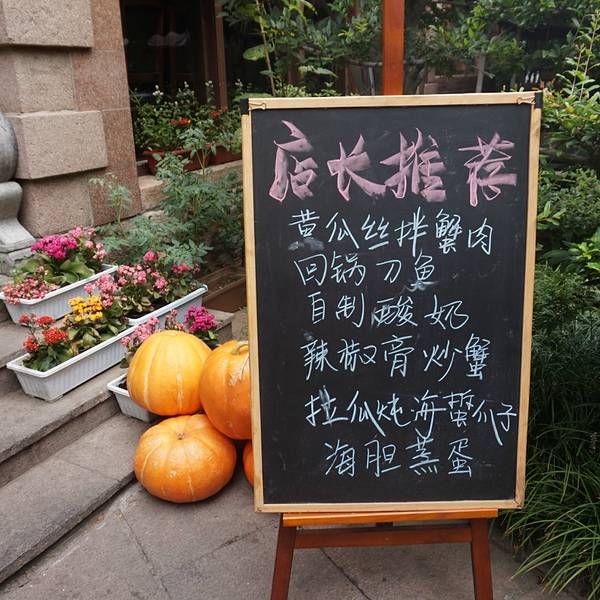 店长推荐
黄瓜丝拌蟹肉
回锅刀鱼
自制酸奶
辣椒膏炒蟹
瓜炖海蜇爪子
海胆蒸蛋